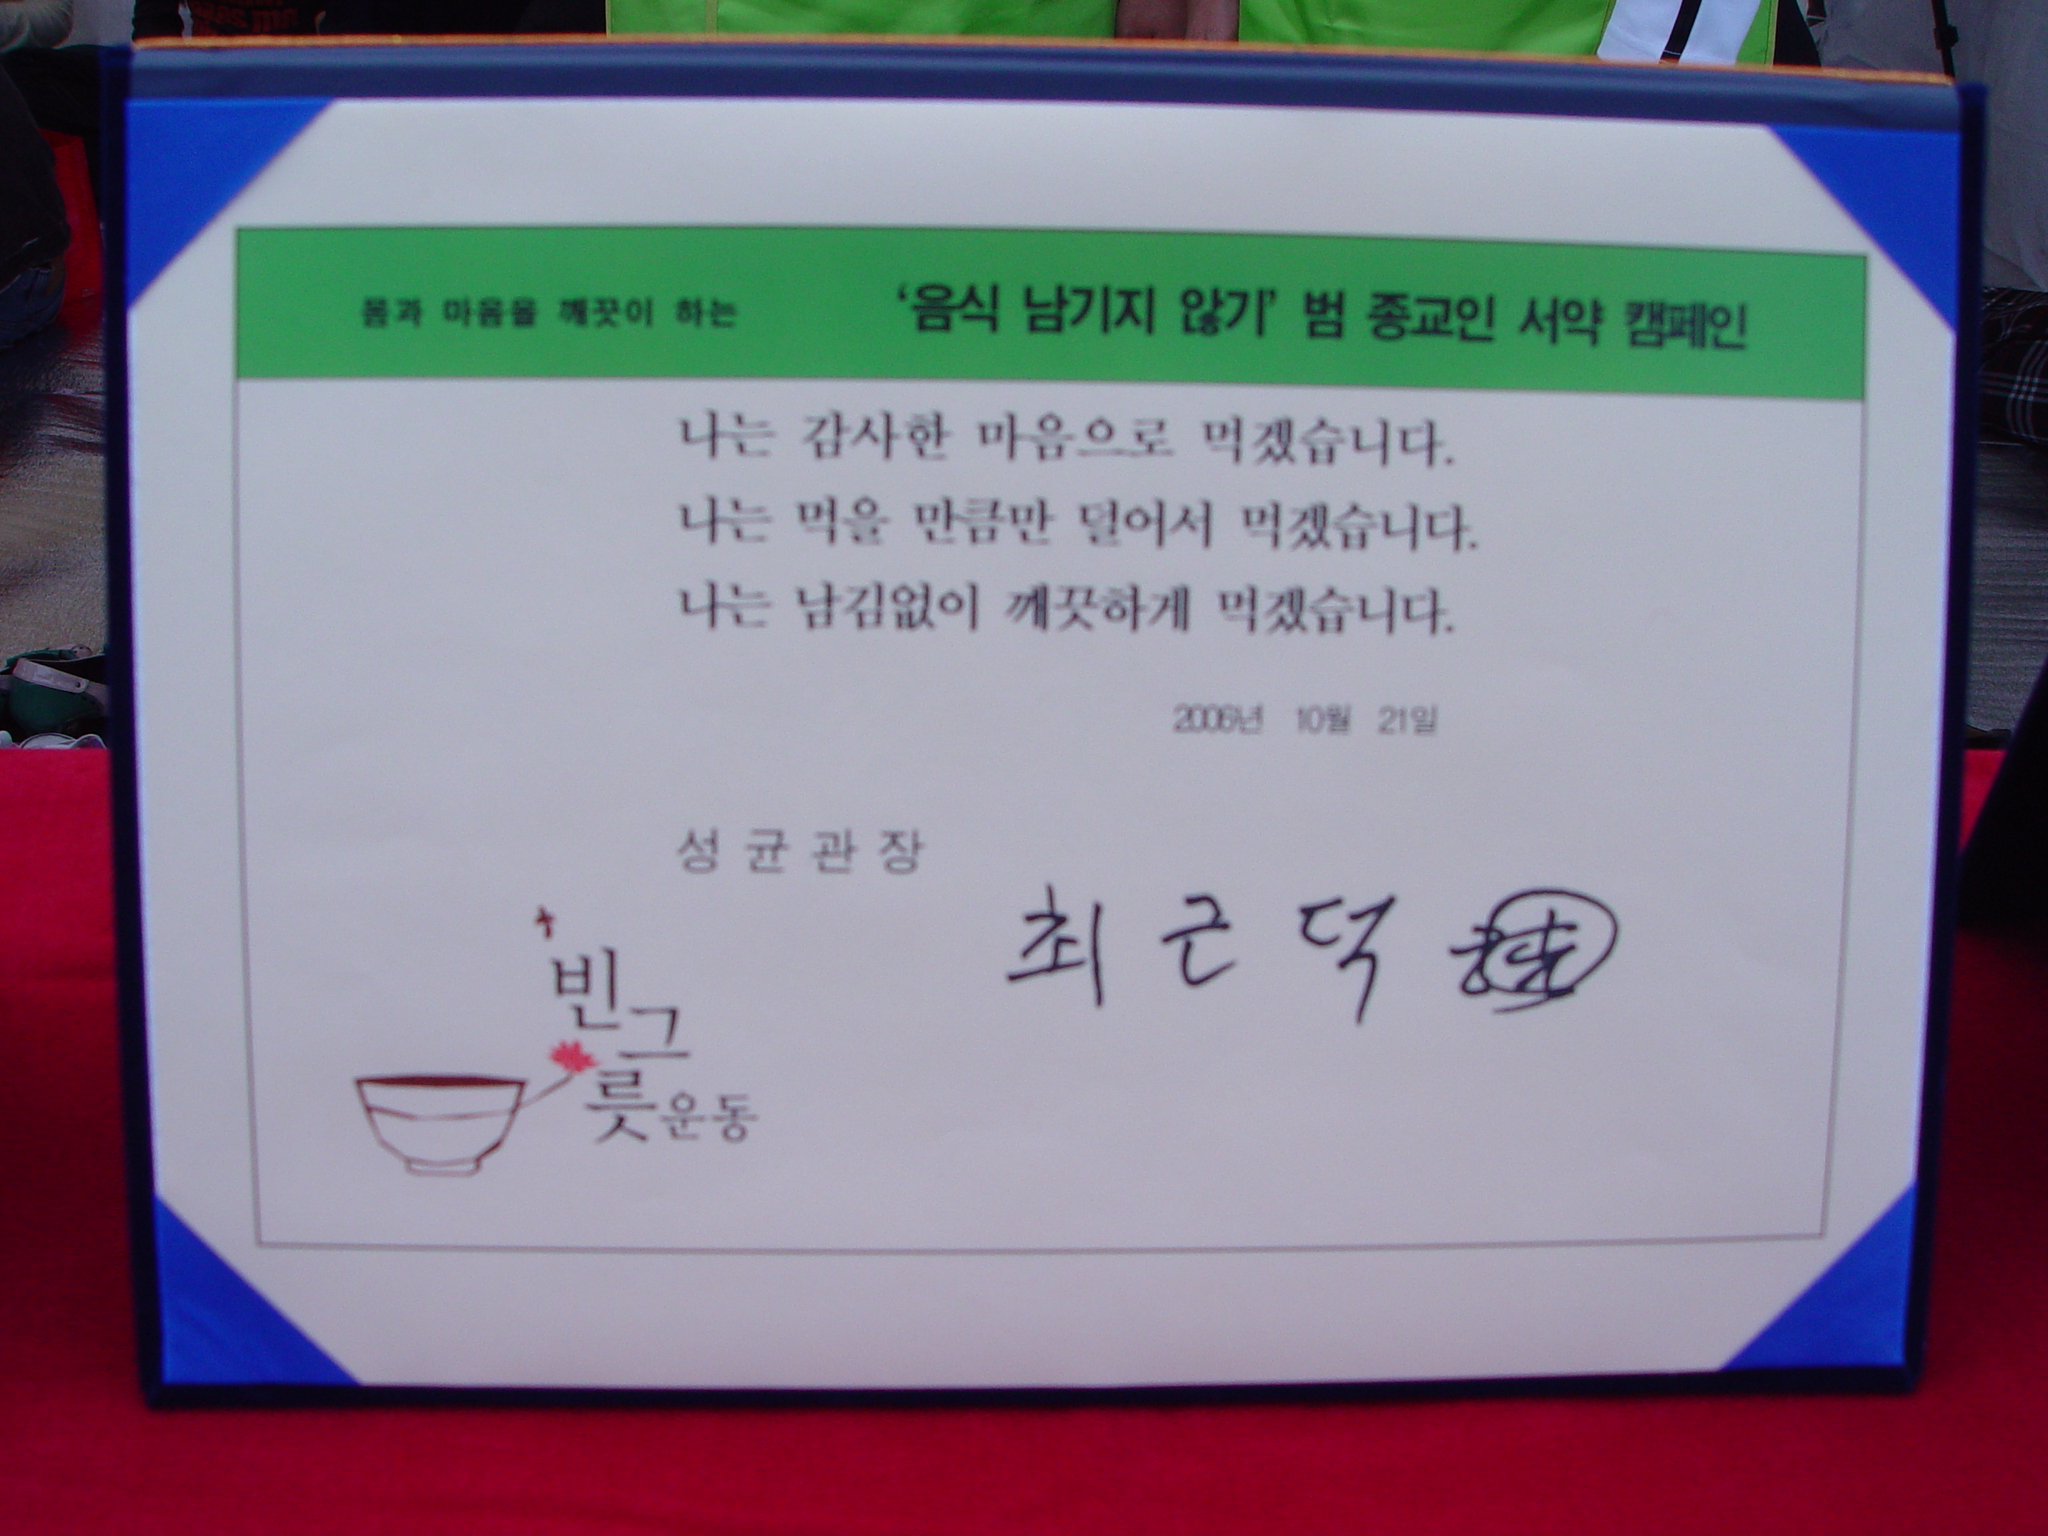 몸과 마음을 깨끗이 하는 '음식 남기지 않기' 범 종교인 서약 캠페인
나는 감사한 마음으로 먹겠습니다.
나는 먹을 만큼만 덜어서 먹겠습니다.
나는 남김없이 깨끗하게 먹겠습니다.
2006년 10월 21일
성균관장
최근덕
빈그릇운동